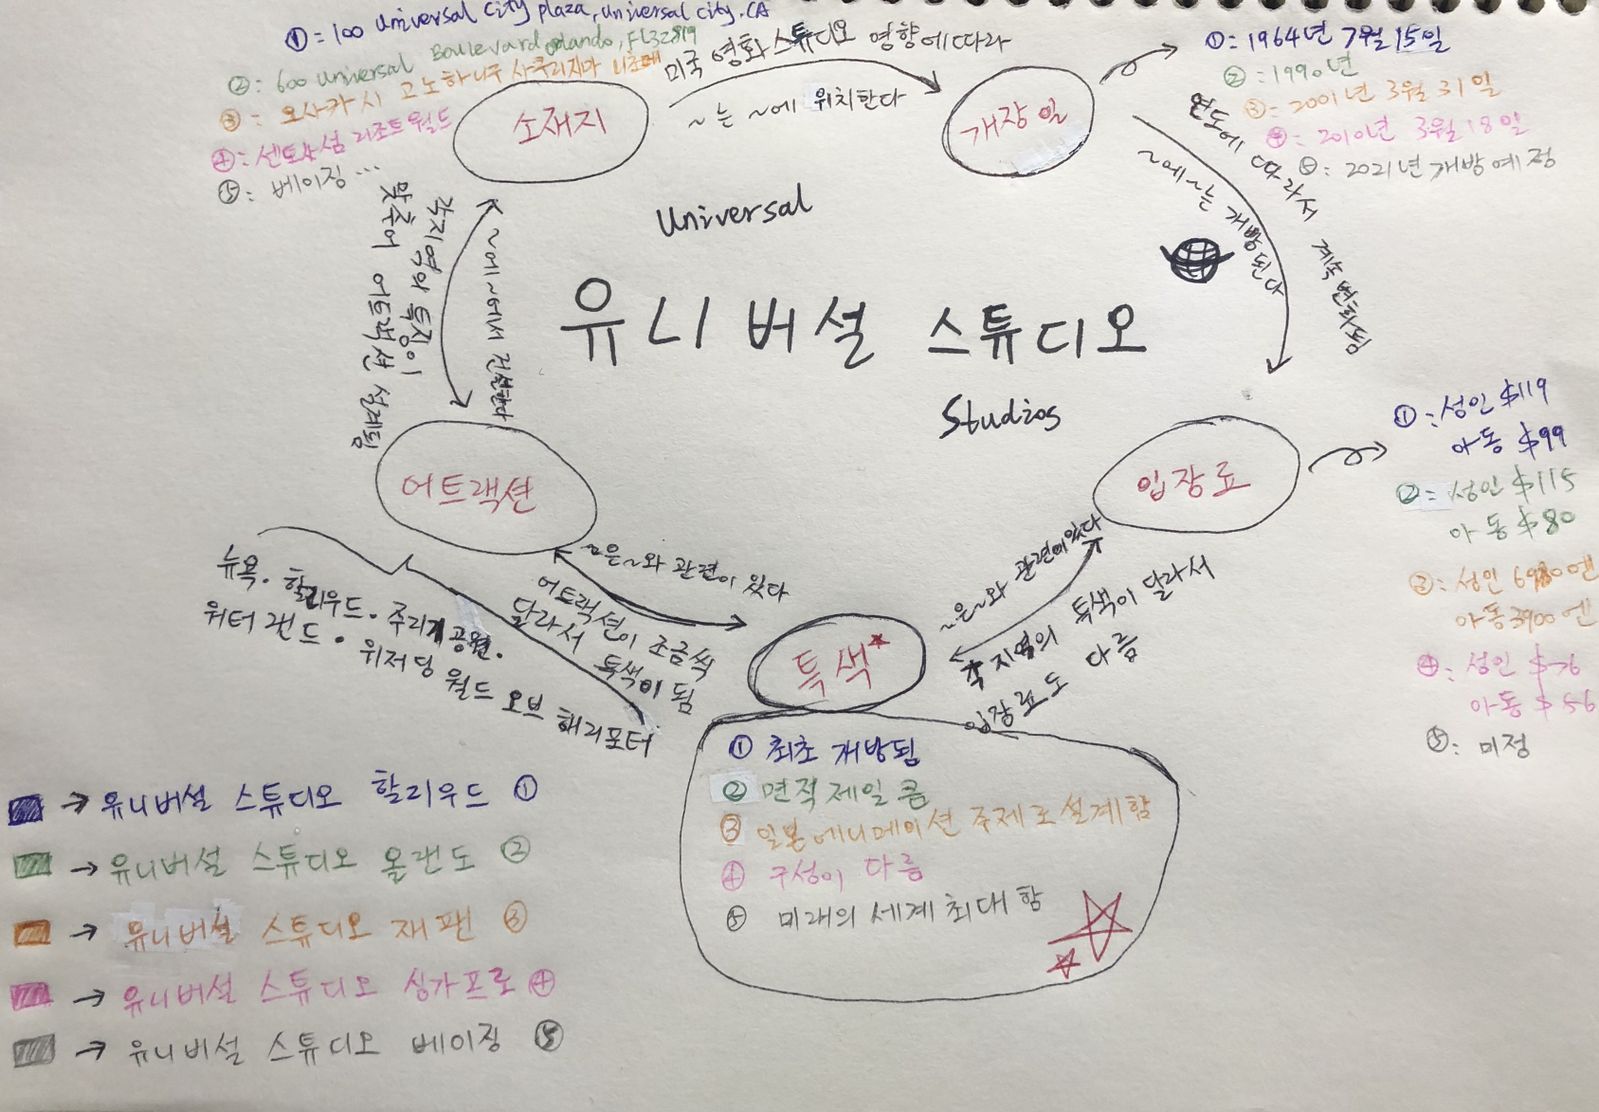 ①: 100 Universal City plaza, Universal city, CA
②: 600 Universal Boulevard Orlando, FL32819
③: 오사카시 고노하나구 사쿠라지마
④: 센토사섬 리조트월드
⑤: 베이징 ...
소재지
미국 영화스튜디오 영향에따라
~는 ~에 위치한다
개장일
①: 1964년 7월 15일
②: 1990년
③: 2001년 3월 31일
④: 2010년 3월 18일
⑤: 2021년 개방예정
연도에 따라서 계속변화됨
~에~는 개방된다
Universal
유니버설 스튜디오
Studios
각지역의 특징이
맞추어 어트랙션 설계됨
~에~에서 건설한다
어트랙션
입장료
①: 성인 $119
아동 $99
②: 성인 $115
아동 $80
③: 성인 엔
아동3900엔
④: 성인 $76
아동 $56
⑤: 미정
~은~와 관련이 있다
어트랙션이 조금씩
달라서 특색이 됨
~은~와 관련에있다
각 지역의 특색이 달라서
입장료도 다름
뉴욕. 할리우드. 주라기공원.
워터랜드. 위저딩 월드 오브 해리포터
특색*
① 최초 개방됨
② 면적 제일 큼
③ 일본에니메이션 주제로설계함
④ 구성이 다름
⑤ 미래의 세계최대함
→ 유니버설 스튜디오 할리우드 ①
→ 유니버설 스튜디오 올랜도 ②
→ 유니버설 스튜디오 재팬 ③
→ 유니버설 스튜디오 싱가프로 ④
→ 유니버설 스튜디오 베이징 ⑤